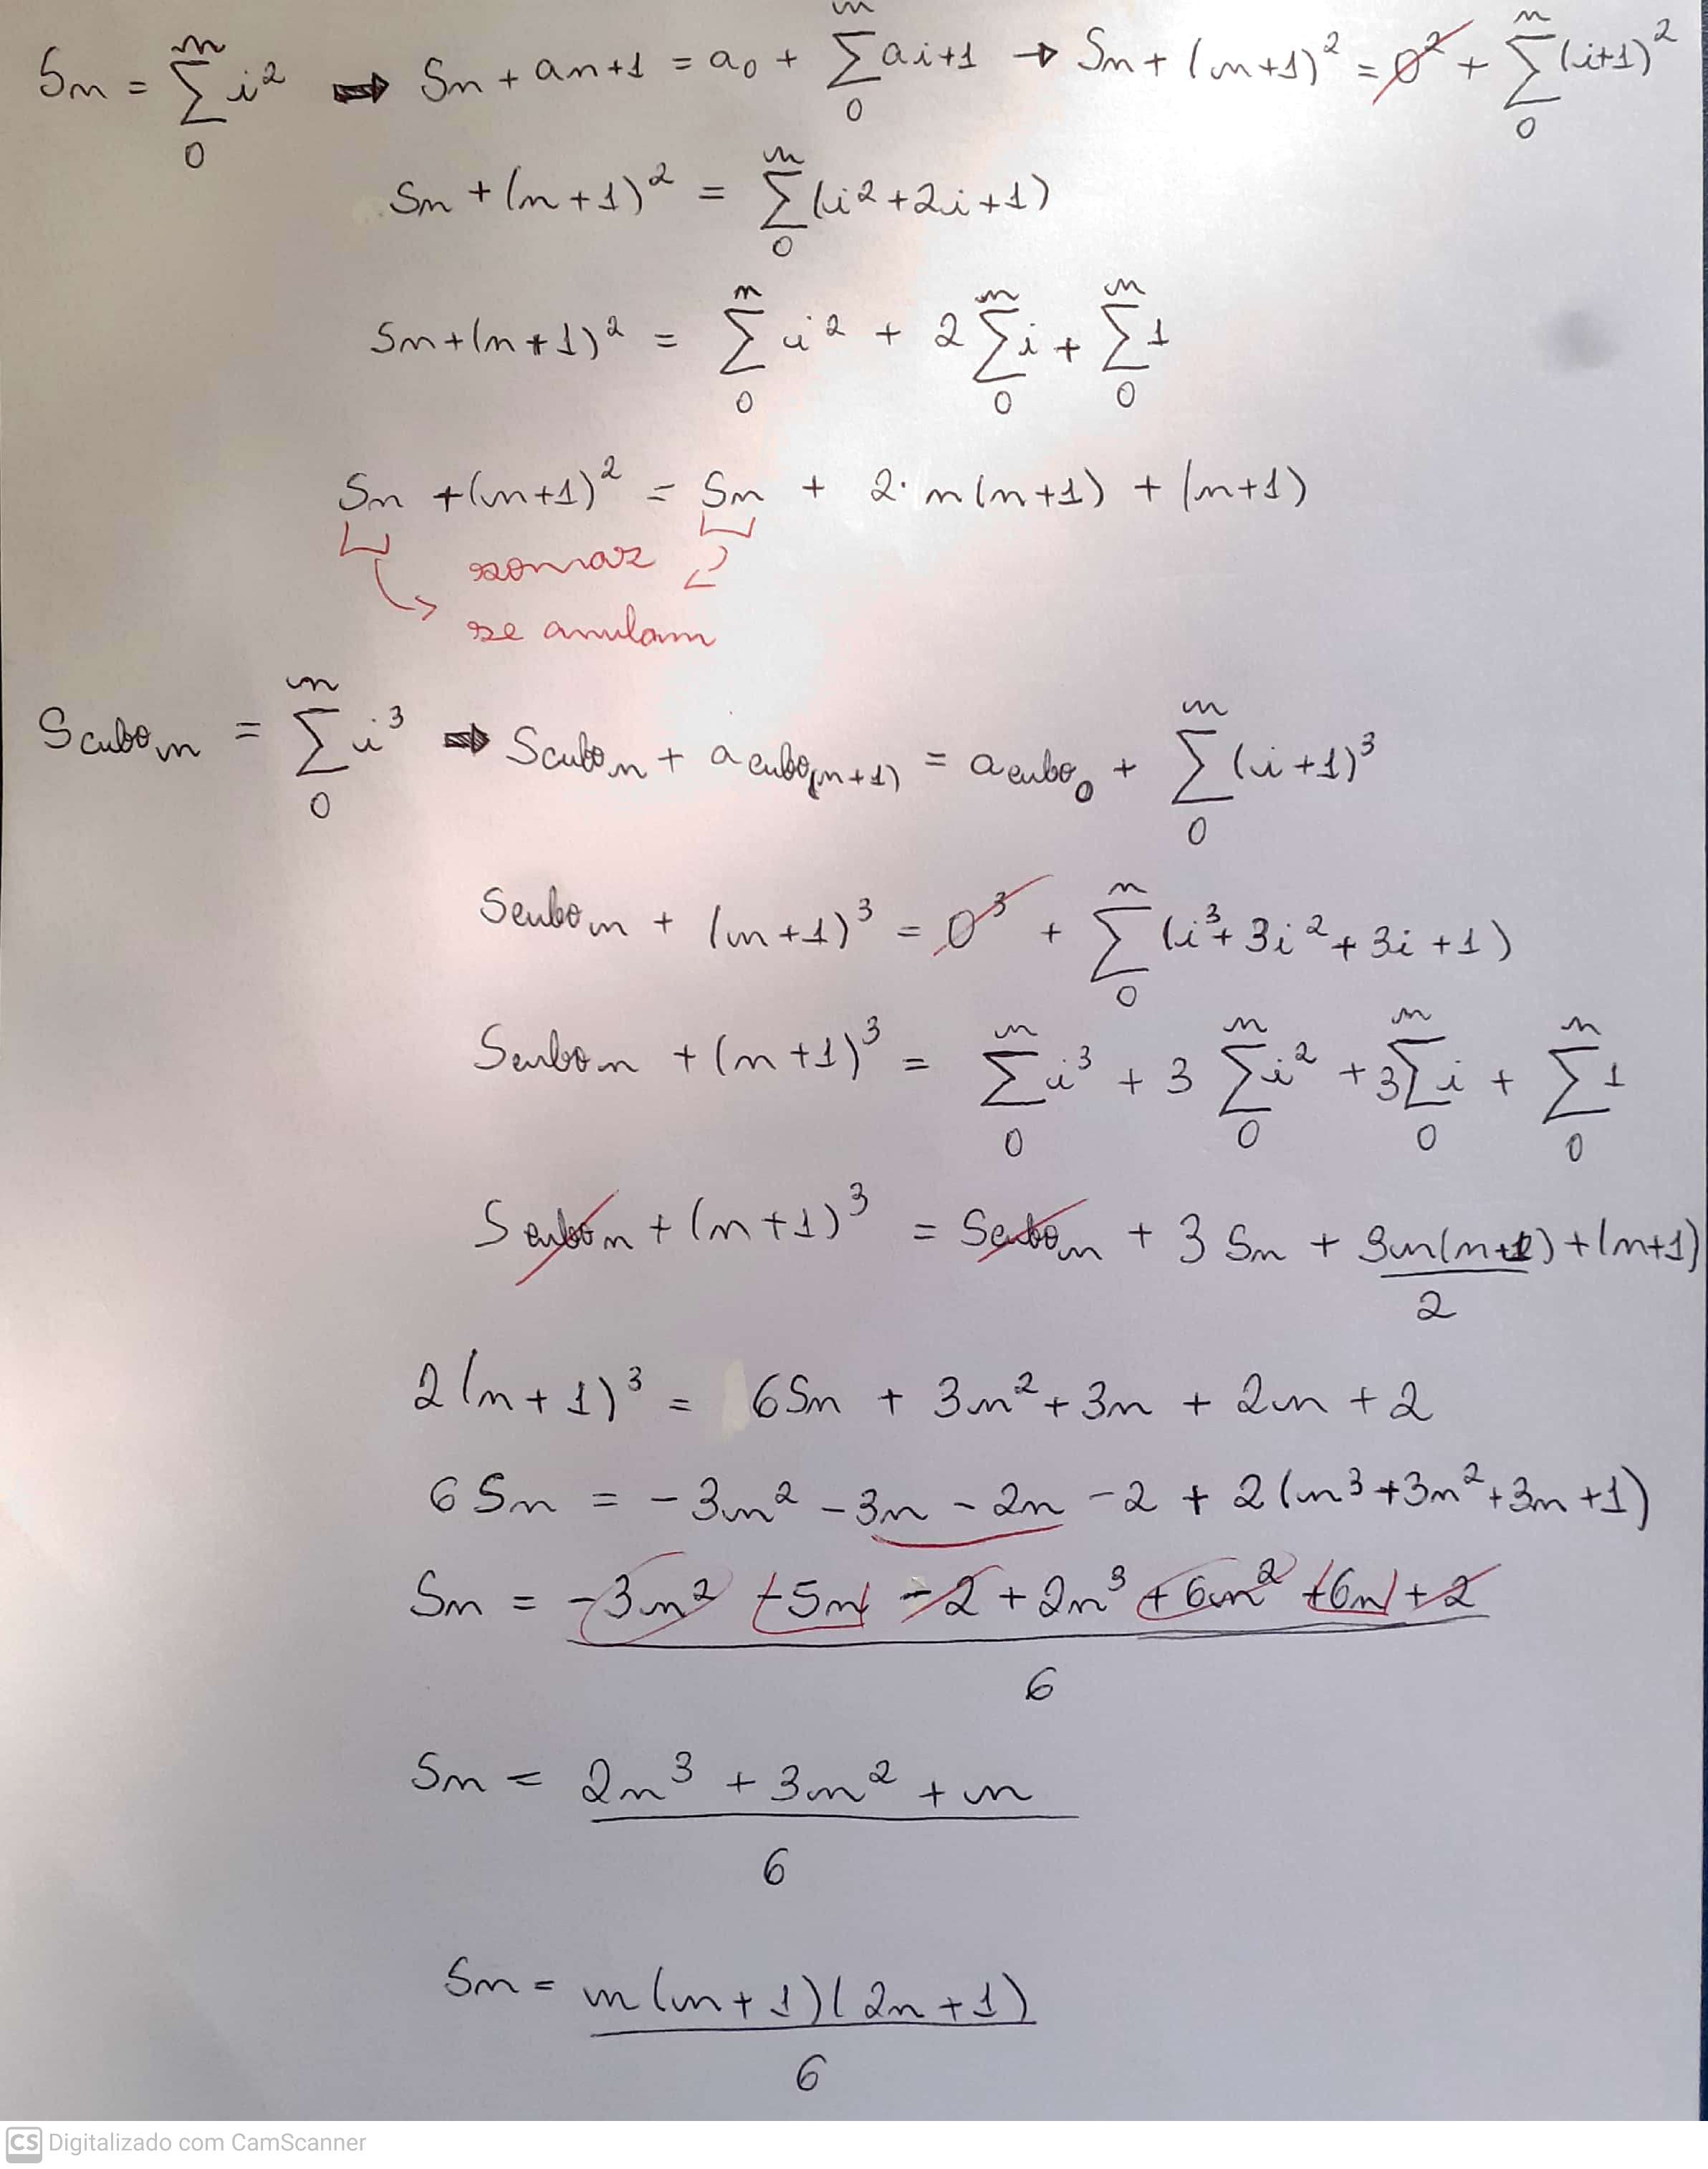 Sn = Σ_0^n i² ⇒ Sn + an+1 = a₀ + Σ_0^n ai+1 → Sn + (n+1)² = 0² + Σ_0^n (i+1)²
Sn + (n+1)² = Σ_0^n (i² + 2i + 1)
Sn + (n+1)² = Σ_0^n i² + 2 Σ_0^n i + Σ_0^n 1
Sn + (n+1)² = Sn + 2· n(n+1) + (n+1)
somas
se anulam
Scubo n = Σ_0^n i³ ⇒ Scubo n + a cubo(n+1) = a cubo₀ + Σ_0^n (i+1)³
Scubo n + (n+1)³ = 0³ + Σ_0^n (i³ + 3i² + 3i + 1)
Scubo n + (n+1)³ = Σ_0^n i³ + 3 Σ_0^n i² + 3 Σ_0^n i + Σ_0^n 1
Scubo n + (n+1)³ = Scubo n + 3 Sn + 3n(n+1)/2 + (n+1)
2(n+1)³ = 6Sn + 3n² + 3n + 2n + 2
6Sn = -3n² - 3n - 2n - 2 + 2(n³ + 3n² + 3n + 1)
Sn = (-3n² - 5n - 2 + 2n³ + 6n² + 6n + 2)/6
Sn = (2n³ + 3n² + n)/6
Sn = n(n+1)(2n+1)/6
CS Digitalizado com CamScanner